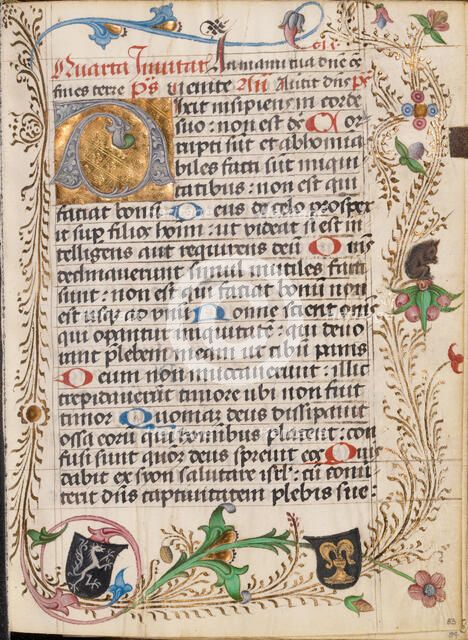 Quarta Invitat In manu tua dne oe
fines terre Ps venite Añ Avertit dns Ps
Dixit insipiens in corde
suo : non est ds Cor
rupti sūt et abhomia
biles facti sūt ī iniqui
tatibus : non est qui
faciat bonū Deus de celo prospex
it sup filios hoīm : ut videat si est in
telligens aut requirens deū Oms
declinaverunt simul inutiles facti
sunt : non est qui faciat bonū non
est usq ad unū Nonne scient oms
qui opantur iniquitatē : qui devo
rant plebem meam ut cibū panis
Deum non invocaverunt : illic
trepidaverūt timore ubi non fuit
timor Quoniaz deus dissipavit
ossa eorū qui homibus placent : con
fusi sunt quoniaz deus sprevit eos Quis
dabit ex syon salutare isrl : cū conv
terit dns captivitatem plebis sue :